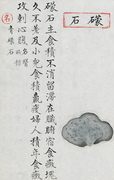 礞石
礞石主食積不消留滯在臟腑宿食癥塊
久不差及小兒食積羸瘦婦人積年食癥
攻刺心腹
名
青礞石